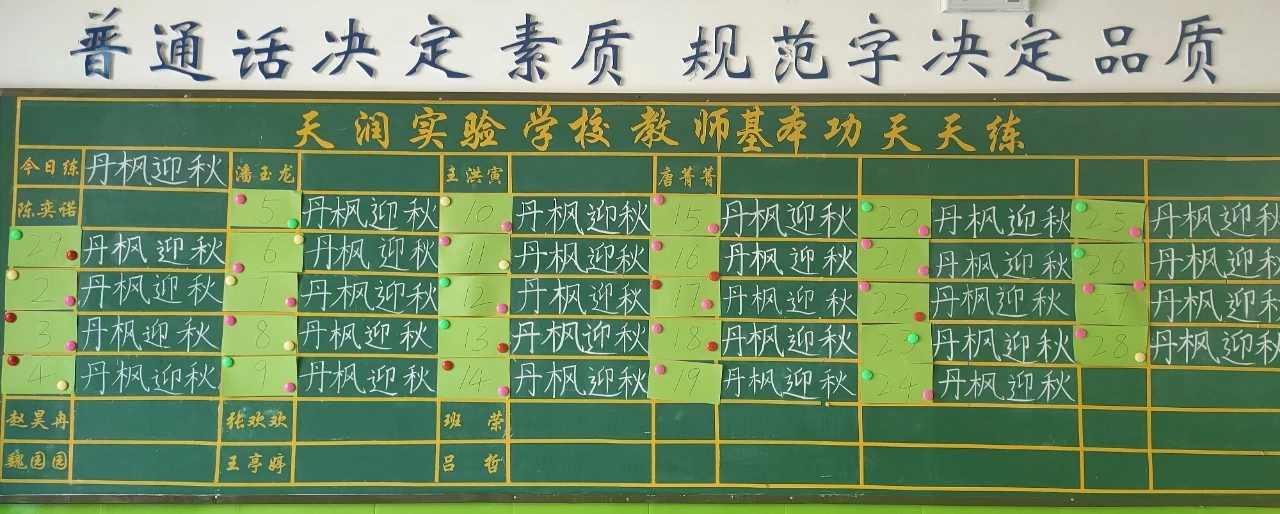 普通话决定素质 规范字决定品质
天润实验学校教师基本功天天练
今日练 丹枫迎秋 潘玉龙 王洪寅 唐菁菁
陈奕诺 5 丹枫迎秋 10 丹枫迎秋 15 丹枫迎秋 20 丹枫迎秋 25 丹枫迎秋
29 丹枫迎秋 6 丹枫迎秋 11 丹枫迎秋 16 丹枫迎秋 21 丹枫迎秋 26 丹枫迎秋
2 丹枫迎秋 7 丹枫迎秋 12 丹枫迎秋 17 丹枫迎秋 22 丹枫迎秋 27 丹枫迎秋
3 丹枫迎秋 8 丹枫迎秋 13 丹枫迎秋 18 丹枫迎秋 23 丹枫迎秋 28 丹枫迎秋
4 丹枫迎秋 9 丹枫迎秋 14 丹枫迎秋 19 丹枫迎秋 24 丹枫迎秋
赵昊冉 张欢欢 班荣
魏园园 王亭婷 吕哲